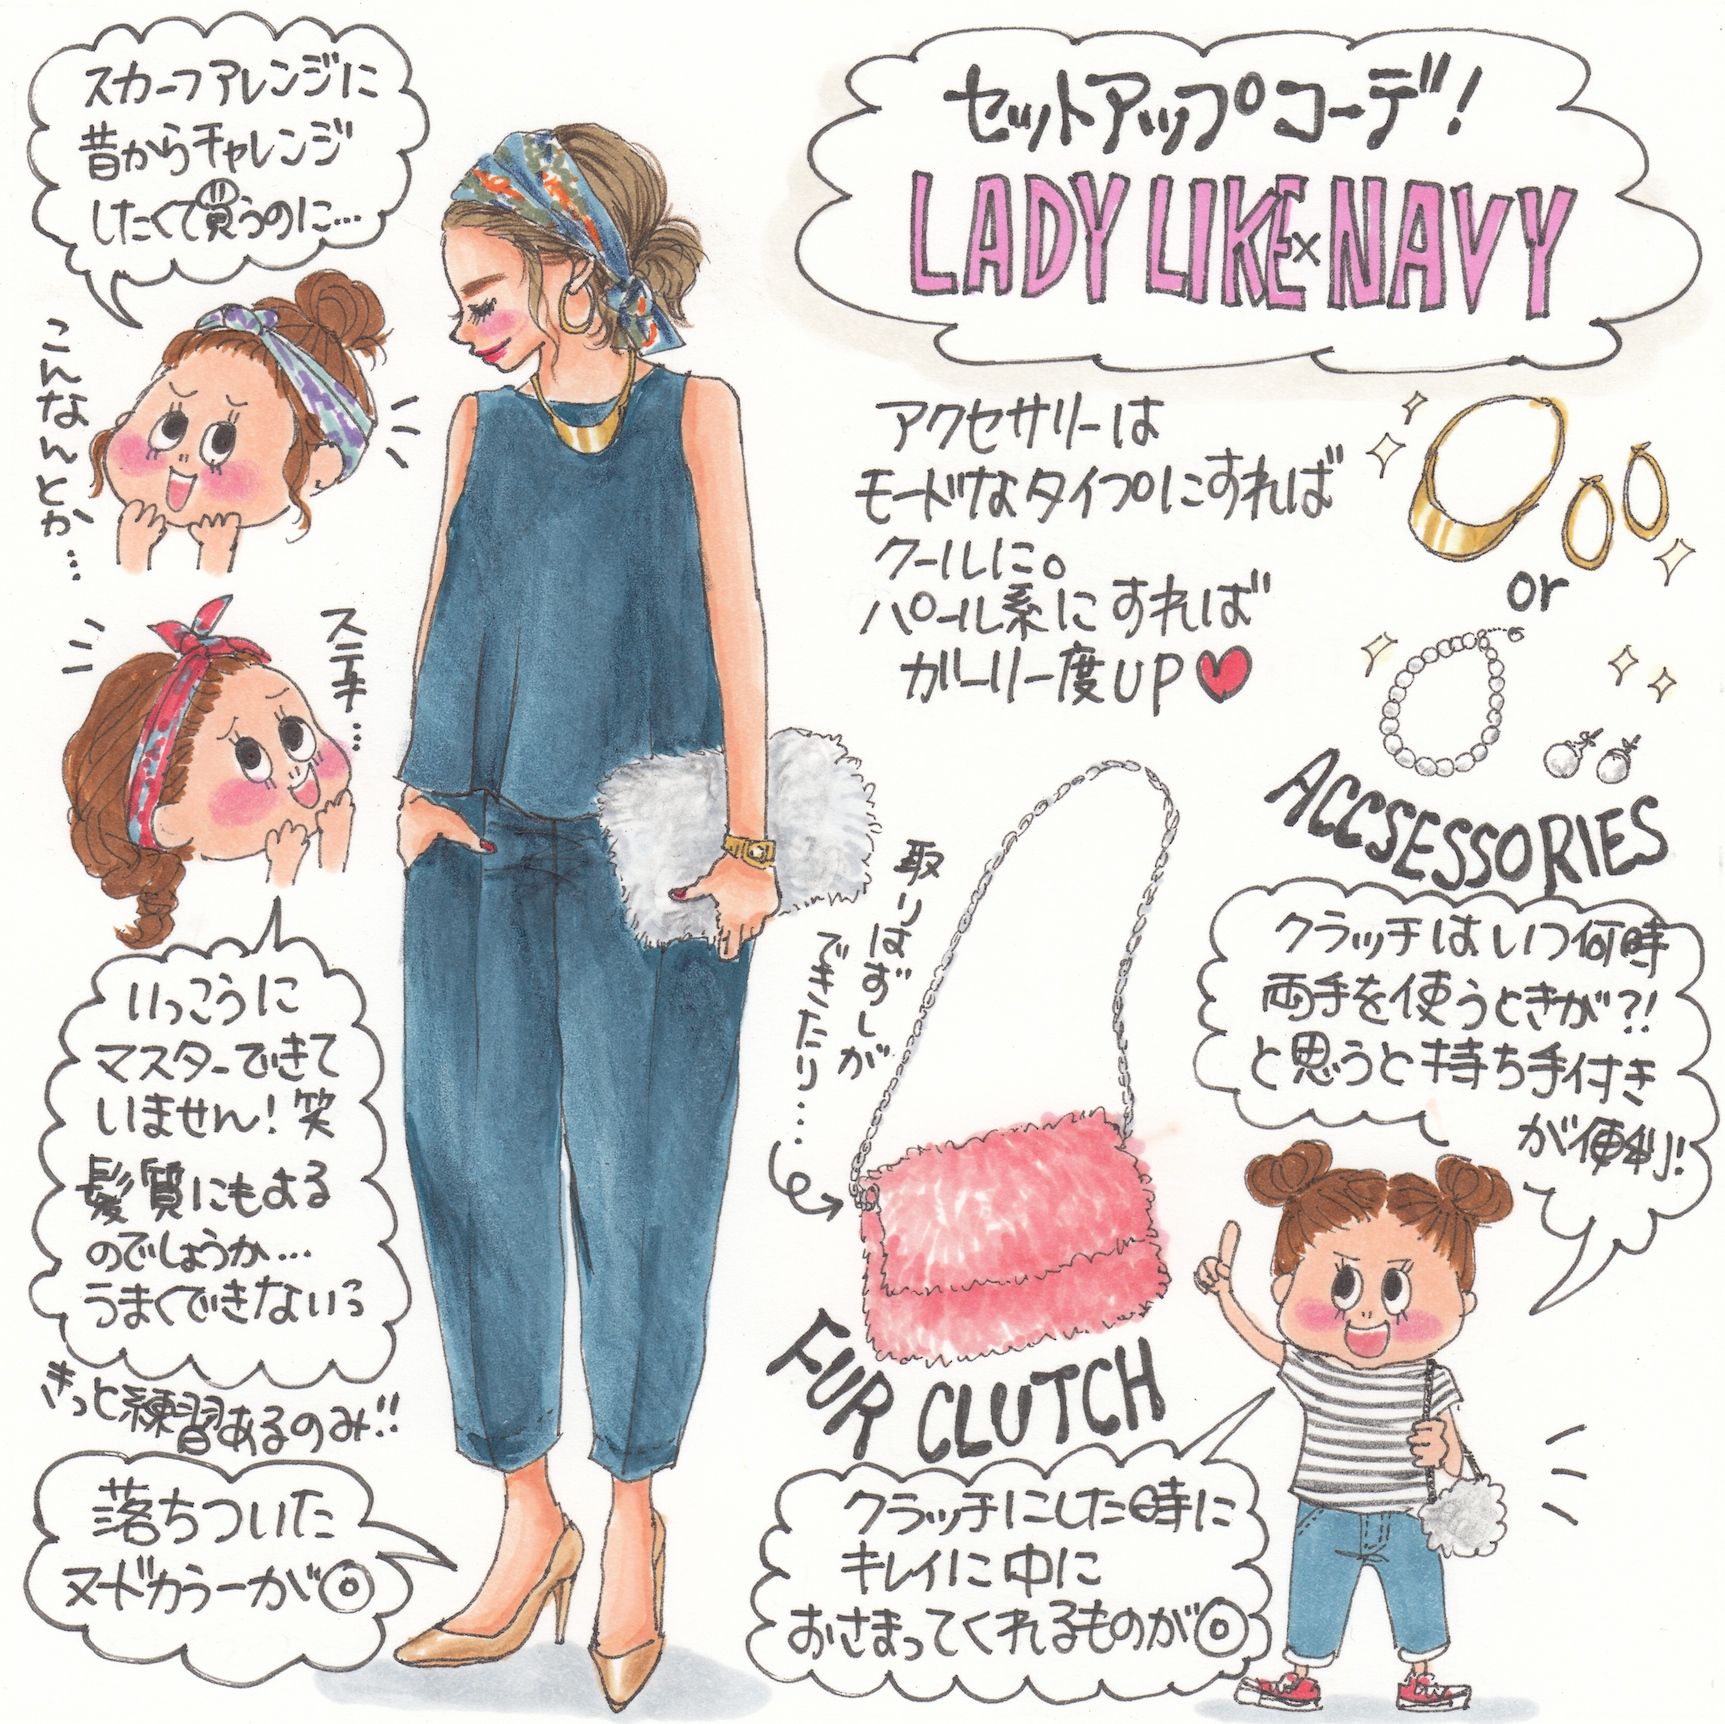 スカーフアレンジに
昔からチャレンジ
したくて買うのに…
こんなんとか…
ステキ…
いっこうに
マスターできて
いません！笑
髪質にもよる
のでしょうか…
うまくできないっ
きっと練習あるのみ!!
落ちついた
ヌードカラーが◎
セットアップコーデ！
LADY LIKE×NAVY
アクセサリーは
モードなタイプにすれば
クールに。
パール系にすれば
ガーリー度UP♥
or
ACCSESSORIES
取りはずしが
できたり…
FUR CLUTCH
クラッチはいつ何時
両手を使うときが?!
と思うと持ち手付き
が便利!
クラッチにした時に
キレイに中に
おさまってくれるものが◎